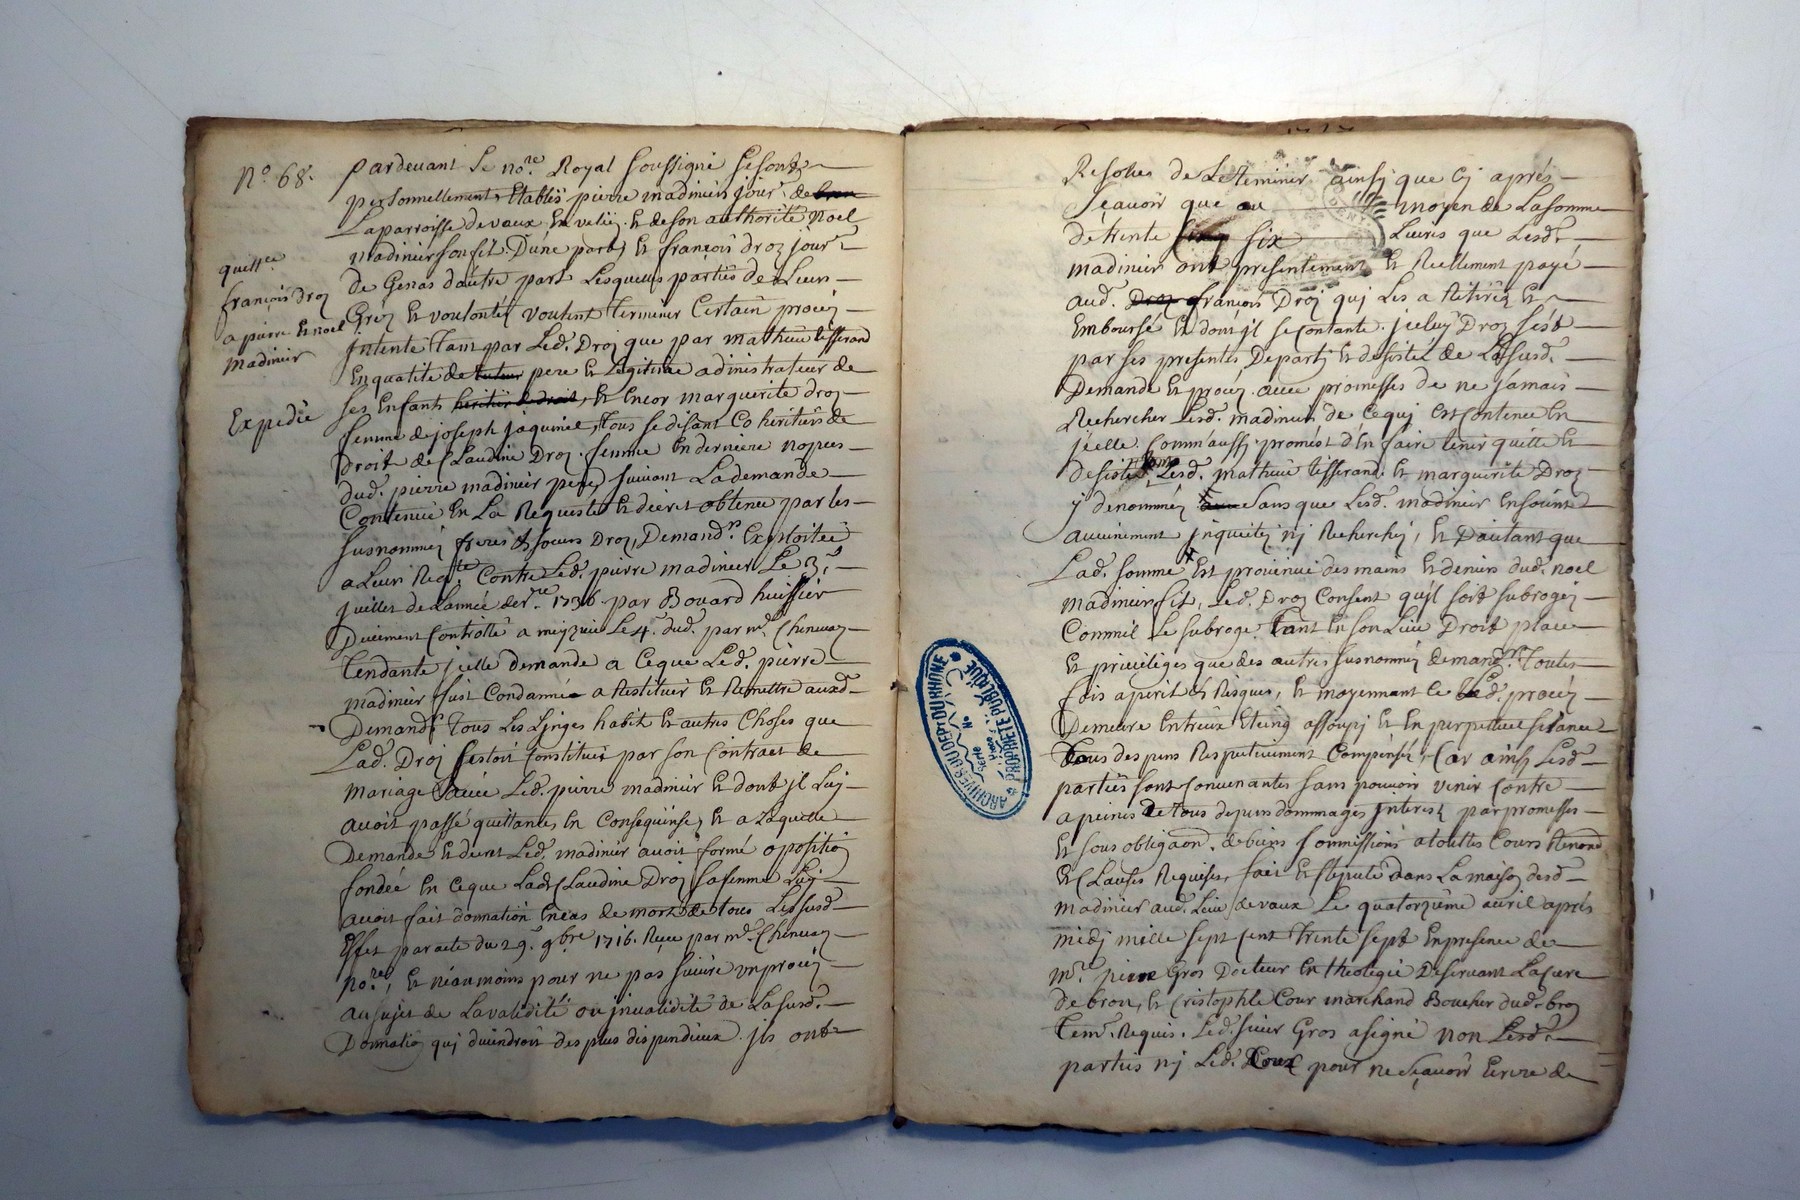 N.º 68.
quittce
françois Droz
a pierre et noel
madinier
Expedie
Pardevant Le no.re Royal soussigné se sont
personnellement Etablis pierre madinier jour.r de bron
La parroisse de vaux En velin et de son authorité noel
madinier son fils D'une part, Et françois droz jour.r
de Genas d'autre part Lesquelles parties de Leurs
Gréz et volontéz voulent terminer Certain procéz
jntenté tant par Led. Droz que par mathieu tisserand
En qualité de tuteur pere Et Legitime adinistrateur de
ses Enfants heritier de droit, et Encor marguerite droz
femme de joseph jaquimel, tous se disant Coheritiers de
Droit de Claudine Droz femme En derniere nopces
dud. pierre madinier pere, suivant La demande
Contenue En La Requeste Et decret obtenue par les
susnommez freres & sœurs Droz, Demand.rs Exploitée
a Leur Req.te Contre Led. pierre madinier Le 3.e
juillet de L'année der.re 1736. par Bouard huissier
Deuement Controllé a meyzieu Le 4.e dud. par m.e Chenuaz
Tendante jcelle demande a Ceque Led. pierre
madinier fust Condamné a Restituer Et Remettre auxd.
Demand.rs tous Les Linges habit Et autres Choses que
Lad. Droz s'estoit Constitués par son Contract de
mariage avec Led. pierre madinier Et dont jl Luy
avoit passé quittance, En Consequense, Et a Laquelle
Demande Et decret Led. madinier avoit formé opositio
fondée En Ceque Lad. Claudine Droz sa femme Luy
avoit fait donnation En cas de mort de tous Les susd.
Effet par acte du 29.e 9bre 1716. Reçu par m.e Chenuaz
no.re, Et néanmoins pour ne pas suivre un procéz
au sujet de La validité ou jnvalidité de La susd.
Donnatio qui deviendroit des plus dispendieux jls ont
Resolus de Le terminer ainsy que Cy aprés
Sçavoir que au moyen de La somme
de trente six Livres que Lesd.
madinier ont presentement Et Reellement payé
aud. Droz françois Droz qui Les a Retiréz Et
Emboursé Et dont jl se Contante. jceluy Droz s'est
par ses presentes Departy Et desisté de La susd.
Demande Et procéz avec promesses de ne jamais
Rechercher Lesd. madinier de Cequi est Contenu En
jcelle. Comm'aussy promest d'En faire tenir quitte Et
desisté Lesd. mathieu tisserand Et marguerite Droz
y denomméz sans que Lesd. madinier En soient
aucunement jnquietéz nj Recherchéz, Et d'autant que
Lad. somme Est provenue des mains Et deniers dud. noel
madinier fils, Led. Droz Consent qu'jl soit subrogéz
Comm'il Le subroge tant En son Lieu Droit place
Et privileges que des autres susnomméz demand.rs toutes
fois a peril Et Risques, Et moyennant Ce Led. procéz
Demeure Entr'eux Eteint assoupj Et En perpetuel silance
tous despens Respectivement Compensés, Car ainsy Lesd.
parties sont Convenantes sans pouvoir venir Contre
a peines de tous depens dommages jnterest par promesses
Et sous obliga.on de biens soumissions a touttes Cours Renon.d
Et Clauses Requises, fait Et stipulé dans La maison desd.
madinier aud. Lieu de vaux Le quatorzieme avril aprés
midj mille sept Cent trente sept En presence de
m.re pierre Gros Docteur En theologie Deservant La Cure
de bron, Et Cristophle Cour marchand Boucher dud. bron
tem. Requis. Led. sieur Gros a signé non Lesd.
parties nj Led. Cour pour ne sçavoir Ecrire de
ARCHIVES DU DEPT DU RHONE
PROPRIETE PUBLIQUE